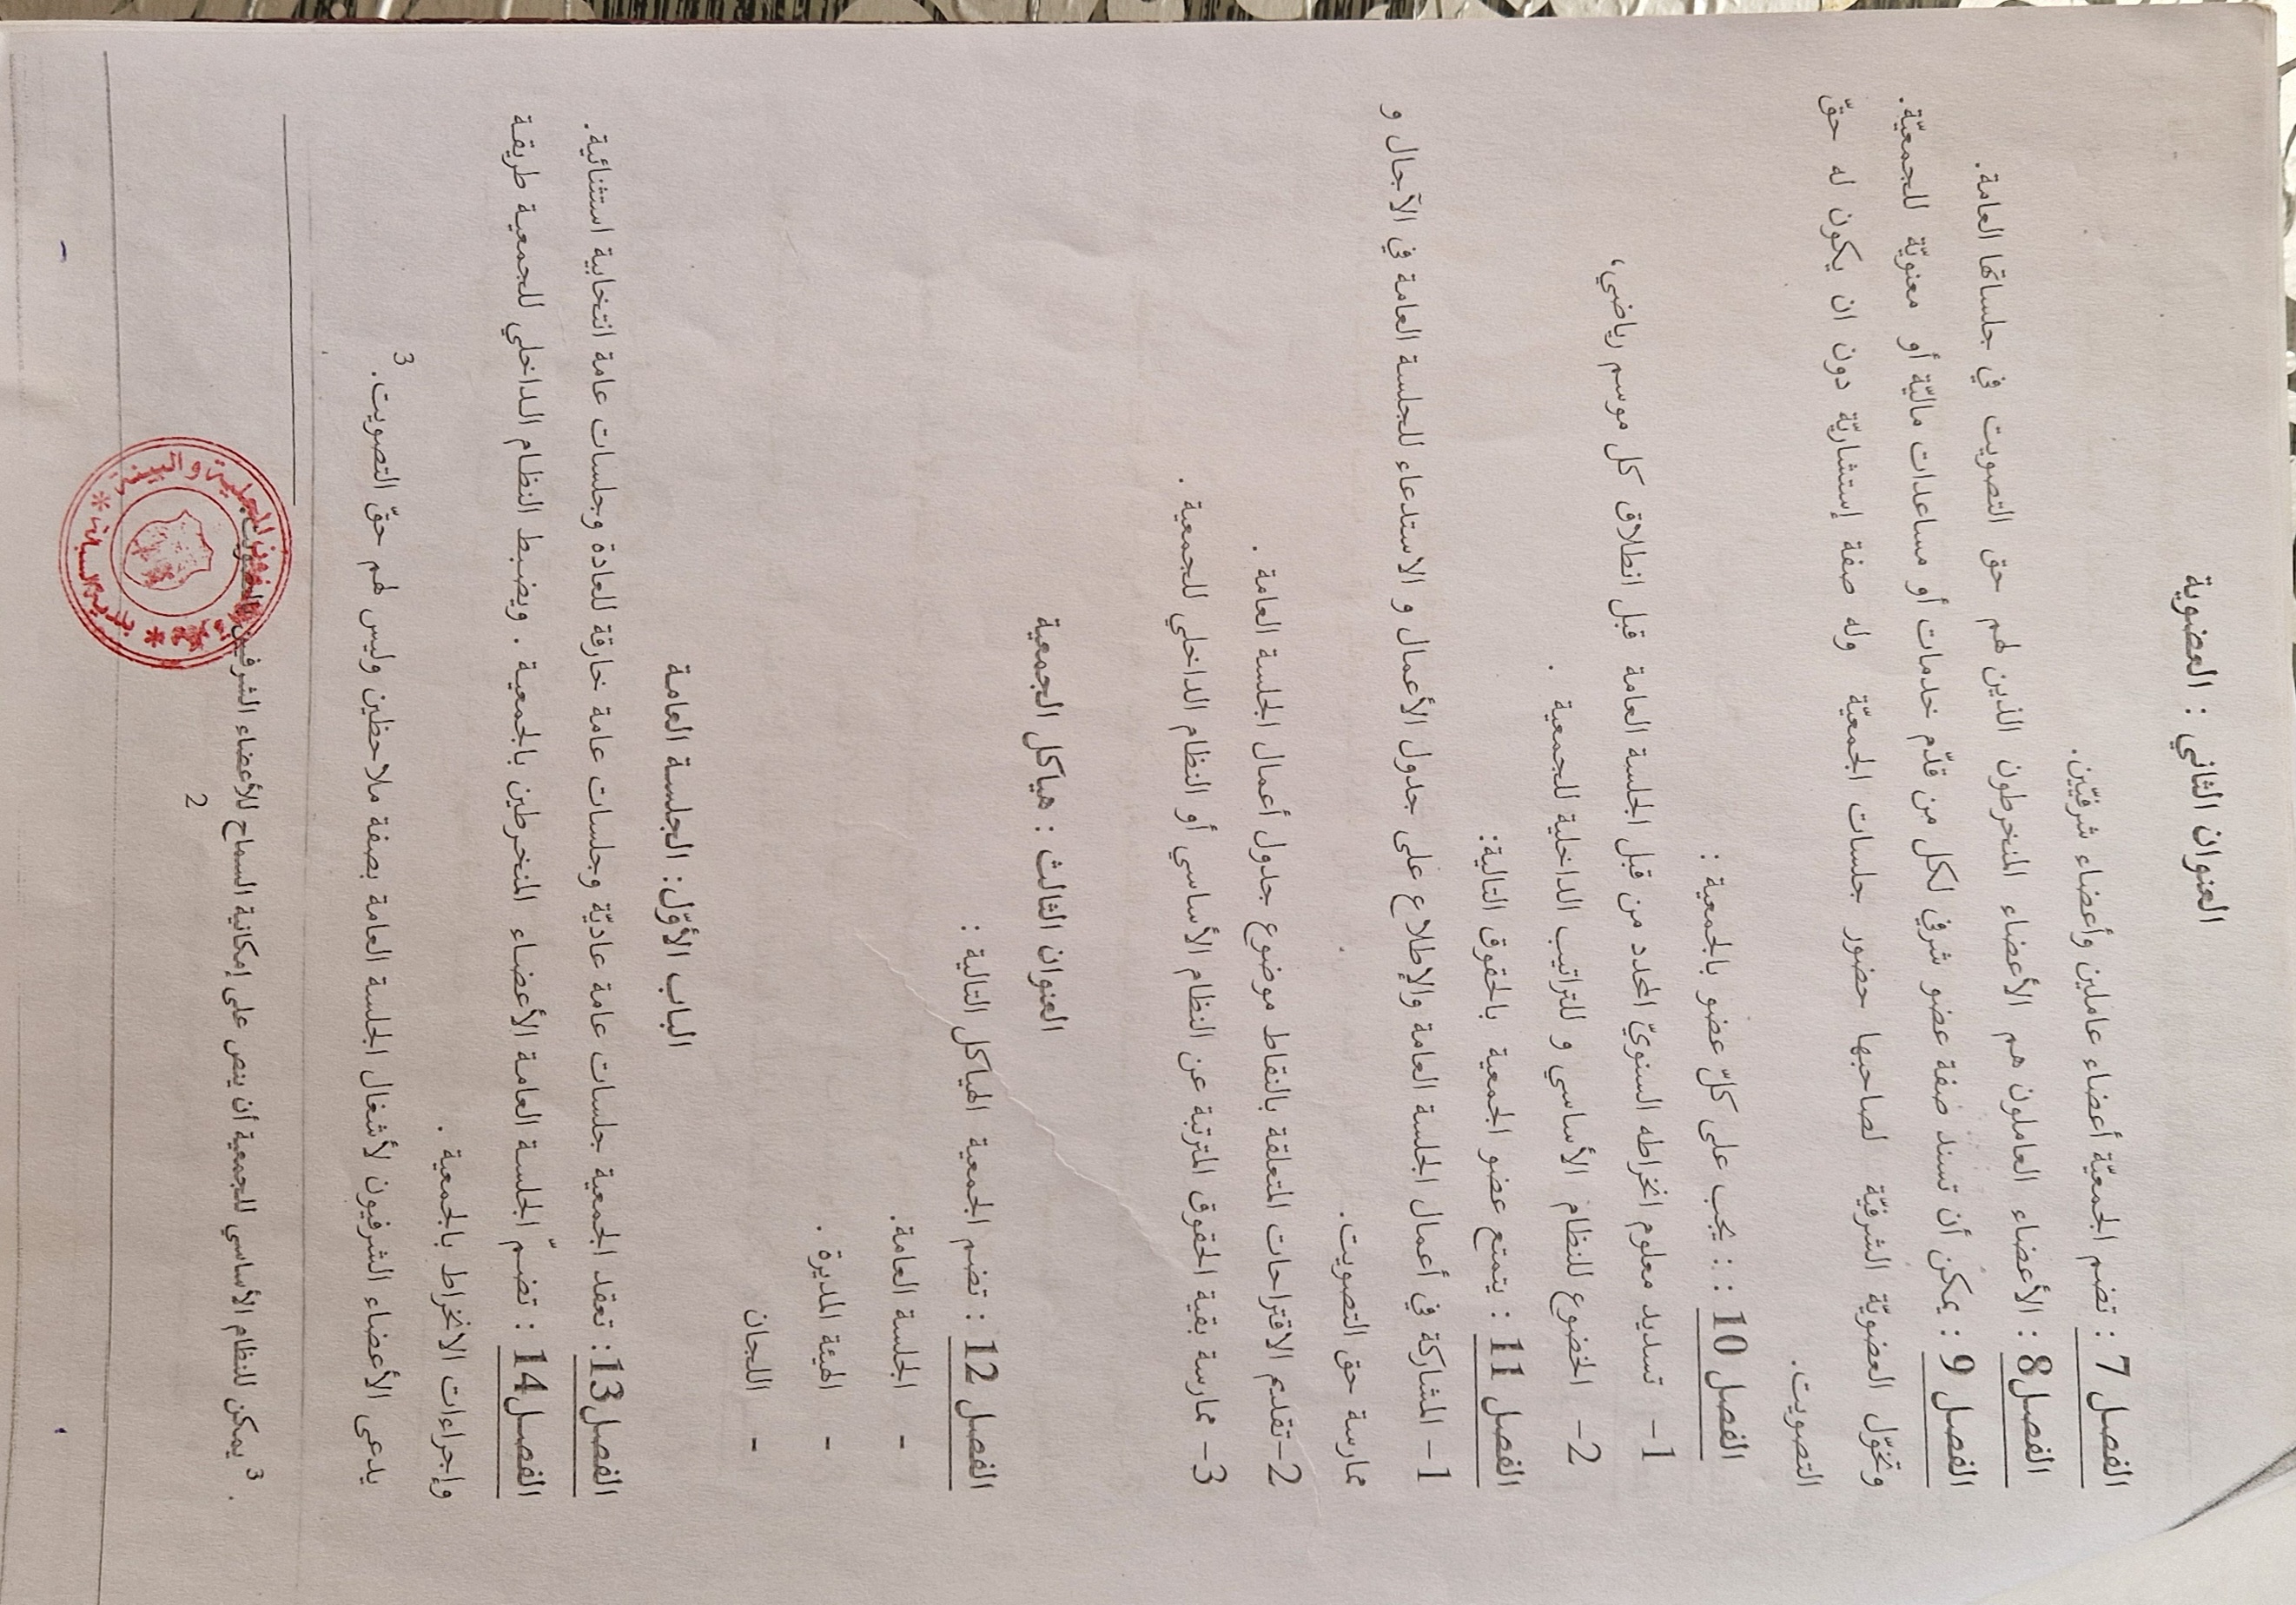 العنوان الثاني : العضوية
الفصل 7 : تضم الجمعيّة أعضاء عاملين وأعضاء شرفيّين.
الفصل 8 : الأعضاء العاملون هم الأعضاء المنخرطون الذين لهم حق التصويت في جلساتها العامة.
الفصل 9 : يمكن أن تسند صفة عضو شرفي لكل من قدّم خدمات أو مساعدات ماليّة أو معنويّة للجمعيّة.
وتخوّل العضويّة الشرفيّة لصاحبها حضور جلسات الجمعيّة وله صفة إستشاريّة دون ان يكون له حقّ
التصويت.
الفصل 10 : : يجب على كلّ عضو بالجمعية :
1- تسديد معلوم انخراطه السنويّ المحدد من قبل الجلسة العامة قبل انطلاق كل موسم رياضي،
2- الخضوع للنظام الأساسي و للتراتيب الداخلية للجمعية .
الفصل 11 : يتمتع عضو الجمعية بالحقوق التالية:
1- المشاركة في أعمال الجلسة العامة والإطلاع على جدول الأعمال و الاستدعاء للجلسة العامة في الآجال و
ممارسة حق التصويت.
2-تقديم الاقتراحات المتعلقة بالنقاط موضوع جدول أعمال الجلسة العامة .
3- ممارسة بقية الحقوق المترتبة عن النظام الأساسي أو النظام الداخلي للجمعية .
العنوان الثالث : هياكل الجمعية
الفصل 12 : تضم الجمعية الهياكل التالية :
- الجلسة العامة.
- الهيئة المديرة .
- اللجان
الباب الأوّل: الجلسة العامة
الفصل 13: تعقد الجمعية جلسات عامة عاديّة وجلسات عامة خارقة للعادة وجلسات عامة انتخابية استثنائية.
الفصل 14 : تضمّ الجلسة العامة الأعضاء المنخرطين بالجمعية . ويضبط النظام الداخلي للجمعية طريقة
وإجراءات الانخراط بالجمعية .
يدعى الأعضاء الشرفيون لأشغال الجلسة العامة بصفة ملاحظين وليس لهم حقّ التصويت. 3
. 3 يمكن للنظام الأساسي للجمعية أن ينص على إمكانية السماح للأعضاء الشرفيين بالتصويت
2